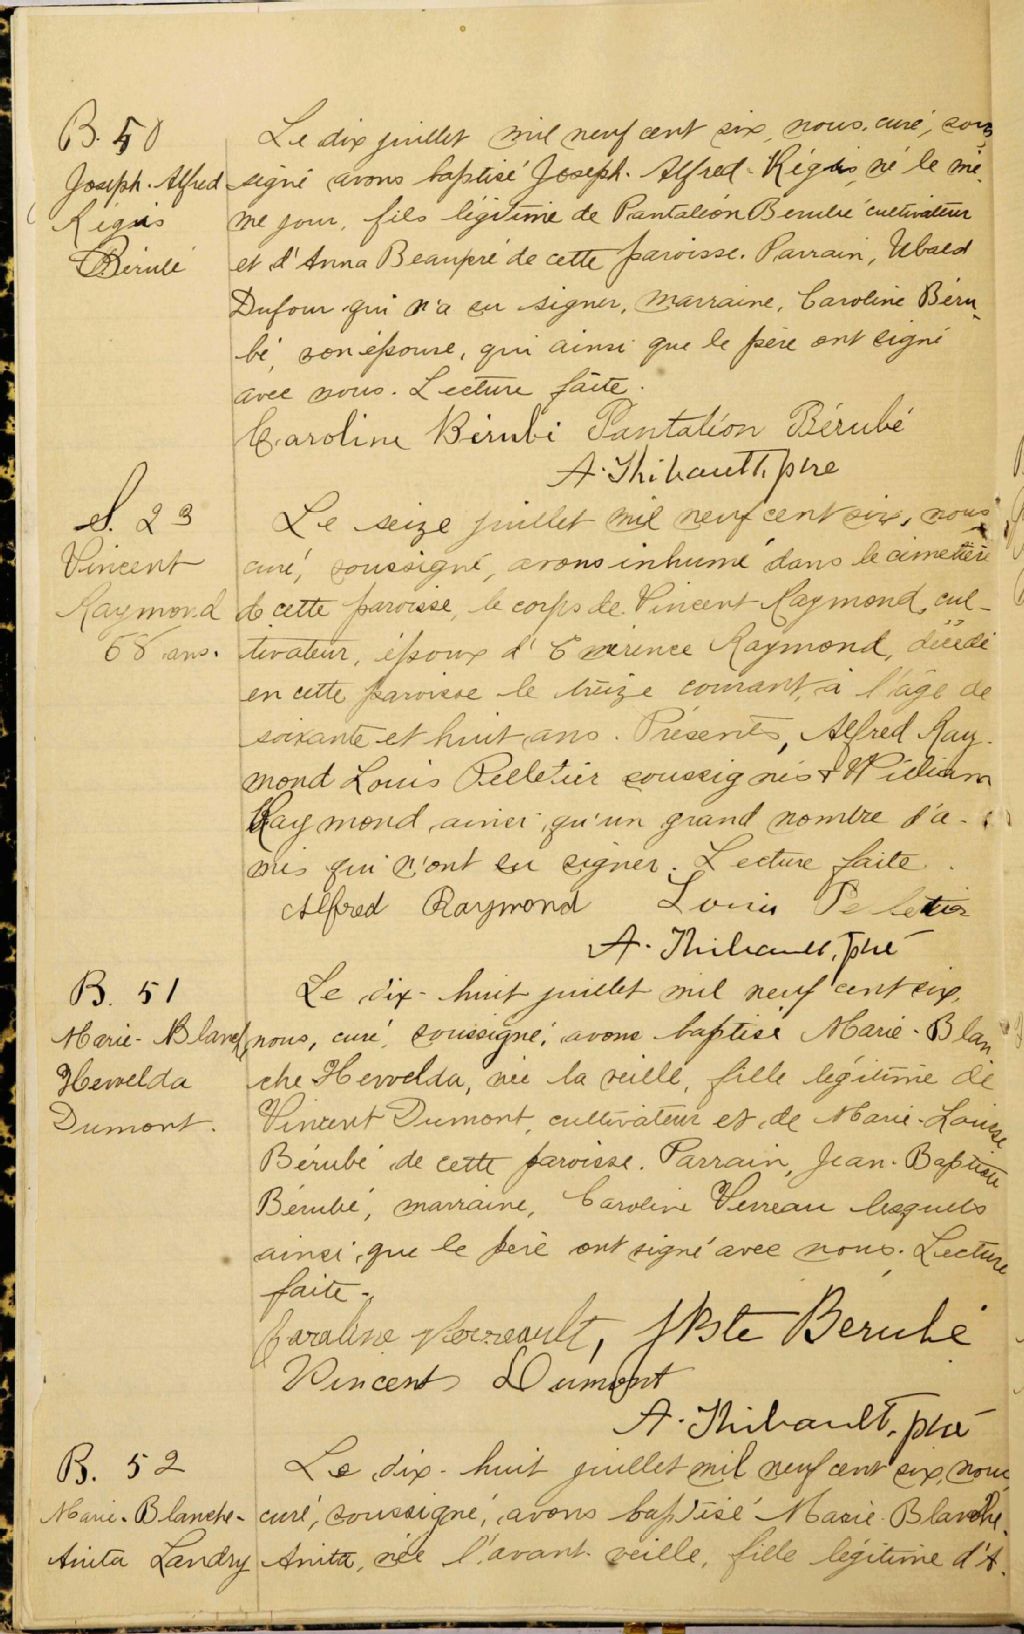 B. 50
Joseph. Alfred
Régis
Bérubé
Le dix juillet mil neuf cent six, nous, curé, sous
signé avons baptisé Joseph. Alfred. Régis, né le mê-
me jour, fils légitime de Pantaléon Berubé cultivateur
et d'Anna Beaupré de cette paroisse. Parrain, Ubald
Dufour qui n'a su signer, marraine, Caroline Béru-
bé, son épouse, qui ainsi que le père ont signé
avec nous. Lecture faite.
Caroline Bérubé Pantaléon Bérubé
A. Thibault, ptre
S. 23
Vincent
Raymond
68 ans.
Le seize juillet mil neuf cent six, nous
curé, soussigné, avons inhumé dans le cimetière
de cette paroisse, le corps de Vincent Raymond, cul-
tivateur, époux d'Emérence Raymond, décédé
en cette paroisse le treize courant, à l'âge de
soixante et huit ans. Présents, Alfred Ray-
mond Louis Pelletier soussignés & William
Raymond, ainsi qu'un grand nombre d'a-
mis qui n'ont su signer. Lecture faite.
Alfred Raymond Louis Pelletier
A. Thibault, ptre
B. 51
Marie-Blanch
Hervelda
Dumont.
Le dix-huit juillet mil neuf cent six,
nous, curé, soussigné, avons baptisé Marie-Blan
che Hervelda, née la veille, fille légitime de
Vincent Dumont, cultivateur et de Marie-Louise
Bérubé de cette paroisse. Parrain, Jean-Baptiste
Bérubé, marraine, Caroline Verreau lesquels
ainsi que le père ont signé avec nous. Lecture
faite.
Caroline Verreault, JBste Bérubé
Vincent Dumont
A. Thibault, ptre
B. 52
Marie-Blanche-
Anita Landry
Le dix-huit juillet mil neuf cent six, nous,
curé, soussigné, avons baptisé Marie-Blanche-
Anita, née l'avant-veille, fille légitime d'A-